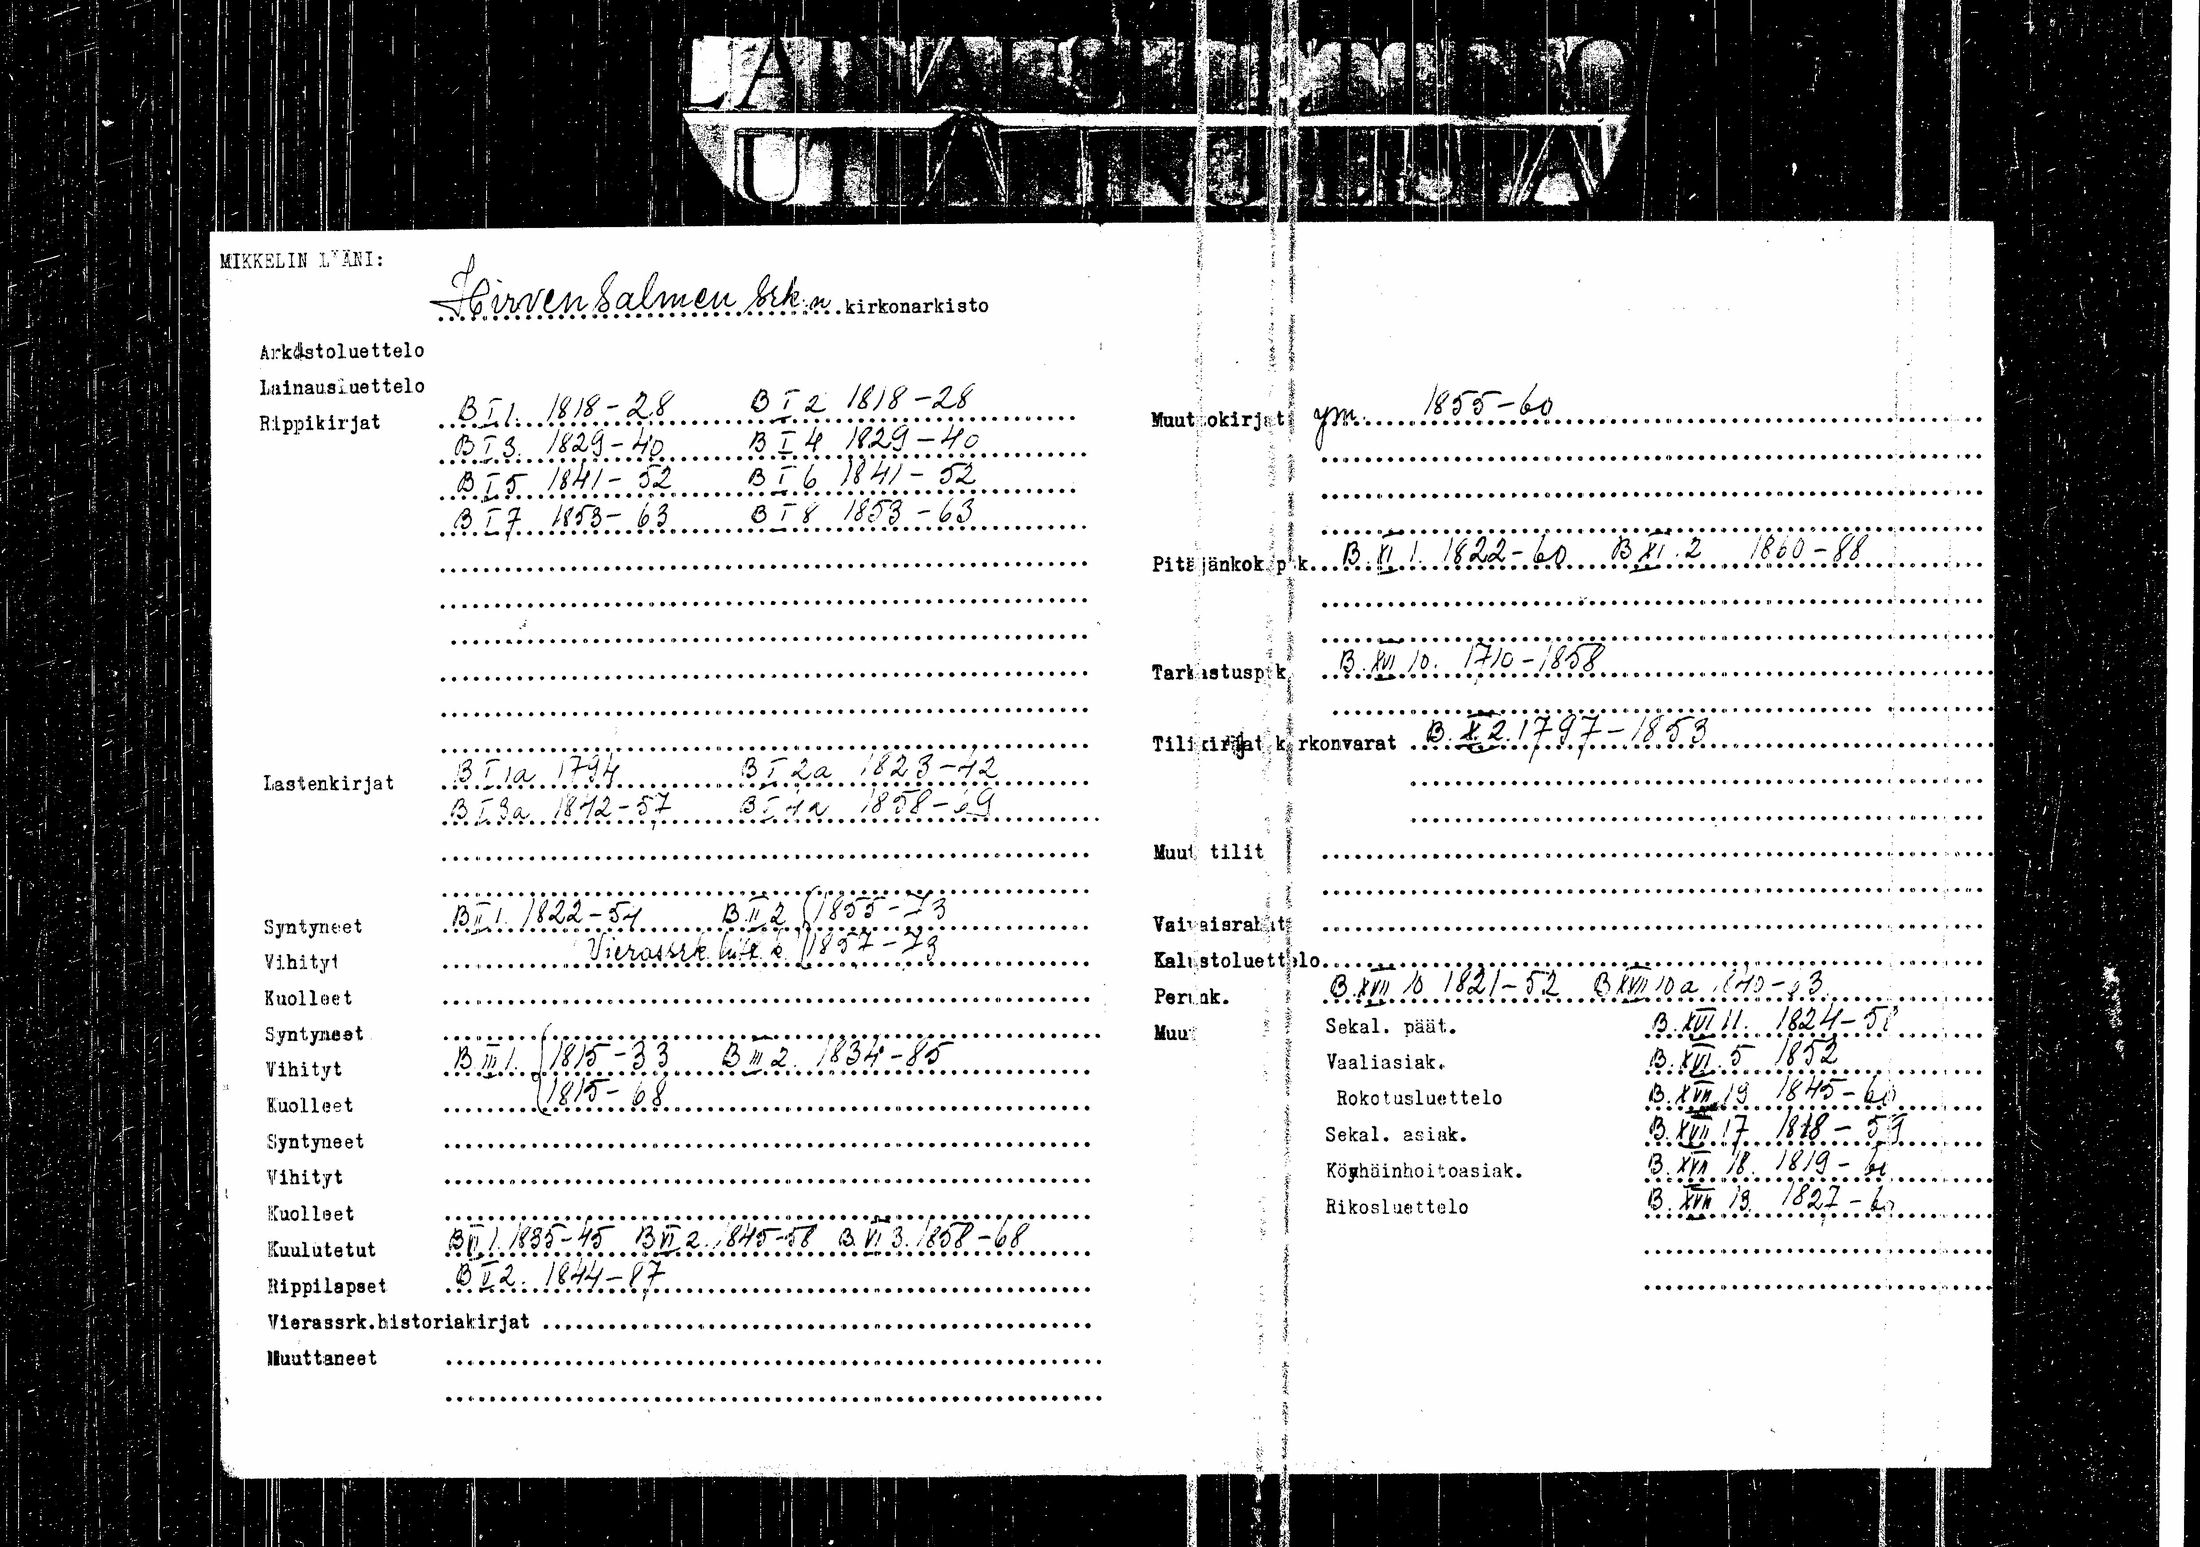 MIKKELIN LÄÄNI:
Hirvensalmen srk:n kirkonarkisto
Arkistoluettelo
Lainausluettelo
Rippikirjat B I 1. 1818-28 B I 2 1818-28
B I 3. 1829-40 B I 4 1829-40
B I 5 1841-52 B I 6 1841-52
B I 7 1853-63 B I 8 1853-63
Lastenkirjat B I 1a 1794 B I 2a 1823-42
B I 3a 1842-57 B I 4a 1858-69
Syntyneet B II 1. 1822-54 B II 2 1855-73
Vihityt Vierassrk 1857-73
Kuolleet
Syntyneet
Vihityt B III 1. 1815-33 B III 2. 1834-85
Kuolleet 1815-68
Syntyneet
Vihityt
Kuolleet
Kuulutetut B VI 1. 1835-45 B VI 2. 1845-58 B VI 3. 1858-68
Rippilapset B V 2. 1844-87
Vierassrk.historiakirjat
Muuttaneet
Muuttokirjat ym. 1855-60
Pitäjänkok.ptk. B XI 1. 1822-60 B XI. 2 1860-88
Tarkastusptk. B. XVI 10. 1710-1858
Tilikirjat kirkonvarat B. X 2. 1797-1853
Muut tilit
Vaivaisrahat
Kalustoluettelo
Perunk. B. XVII 10 1821-52 B XVII 10a
Muut Sekal. päät. B. XVI 11. 1824-58
Vaaliasiak. B. XVI. 5 1852
Rokotusluettelo B. XVII 19 1845-60
Sekal. asiak. B. XVII 17 1818-59
Köyhäinhoitoasiak. B. XVII 18. 1819-
Rikosluettelo B. XVII 19. 1827-60